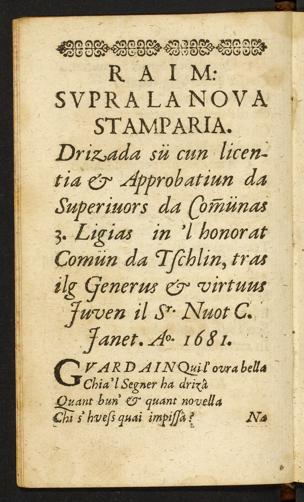 RAIM:
SVPRA LA NOVA
STAMPARIA.
Drizada sü cun licen-
tia & Approbatiun da
Superiuors da Com̃ünas
3. Ligias in 'l honorat
Comün da Tschlin, tras
ilg Generus & virtuus
Juven il Sr. Nuot C.
Janet. Ao. 1681.
GVARDAIN Qui l' ovra bella
Chia'l Segner ha drizà
Quant bun' & quant novella
Chi s' hvess quai impissà?
Na